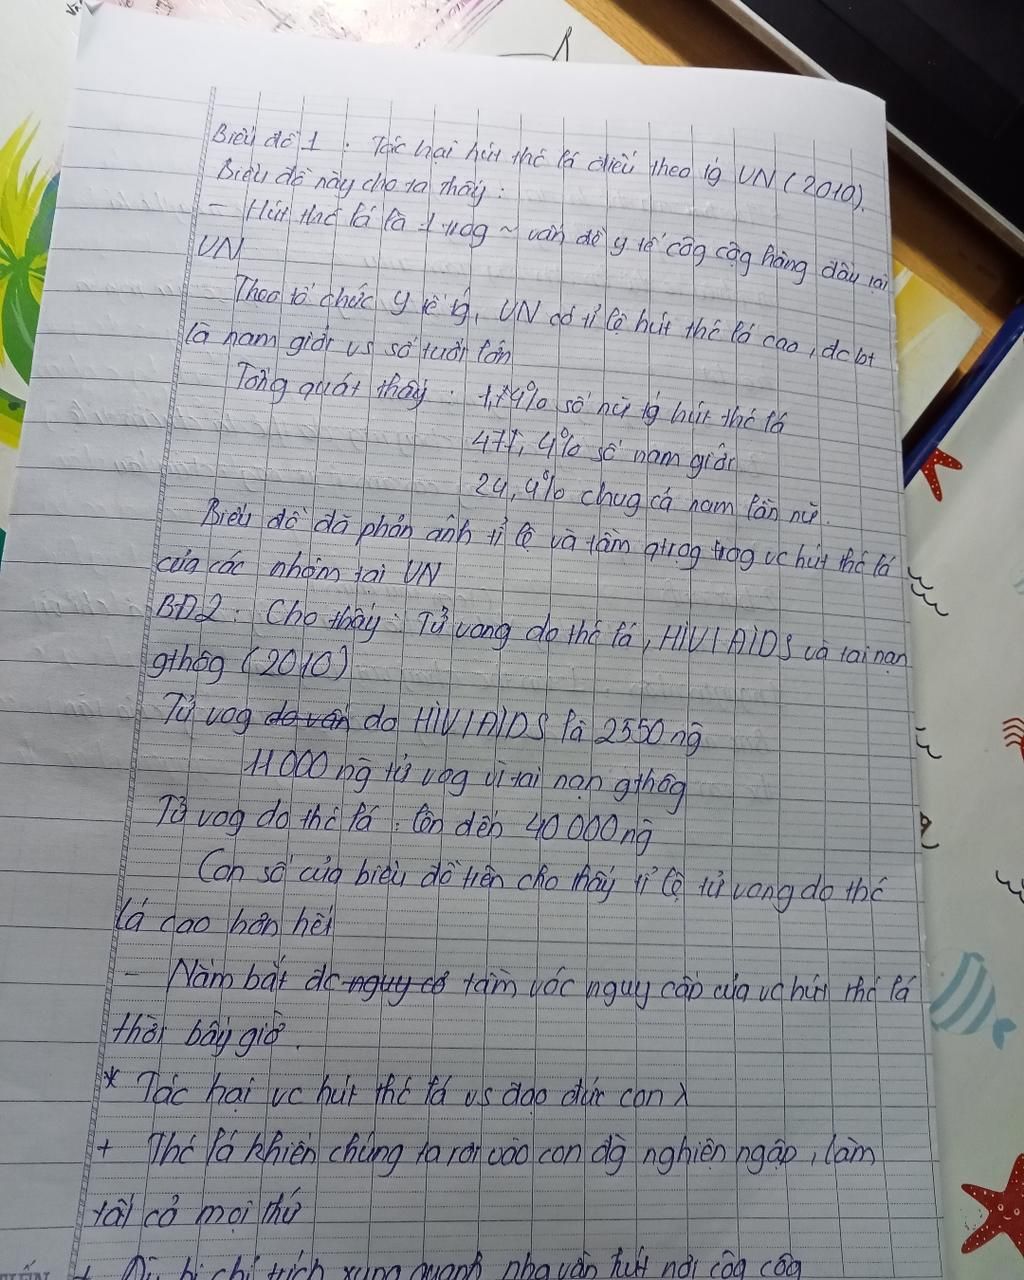 Biểu đồ 1. Tác hại hút thć lá điếu theo tg VN (2010).
Biểu đồ này cho ta thấy:
- Hút thć lá là 1 trog ~ vấn đề y tế côg cộg hàng đầu tại
VN
Theo tổ chức y tế tg, VN có tỉ lệ hút thć lá cao, đcbt
là nam giới vs số tuổi lớn
Tổng quát thấy: 1,4% số nữ tg hút thć lá
47,4% số nam giới
24,4% chug cả nam lẫn nữ.
Biểu đồ đã phản ánh tỉ lệ và tầm qtrog trog vc hút thć lá
của các nhóm tại VN
BĐ2: Cho thấy: Tử vong do thć lá, HIV/AIDS và tai nạn
gthôg (2010)
Tử vog do vấn do HIV/AIDS là 2550 ng̃
11000 ng̃ tử vog vì tai nạn gthôg
Tử vog do thć lá: lên đến 40 000 ng̃
Con số của biểu đồ trên cho thấy tỉ lệ tử vong do thć
lá cao hơn hết
- Nắm bắt đc nguy cơ tầm vóc nguy cấp của vc hút thć lá
thời bây giờ.
* Tác hại vc hút thć lá vs đạo đức con λ
+ Thć lá khiến chúng ta rơi vào con đg̀ nghiện ngập, làm
tất cả mọi thứ
+ bị chỉ trích xung quanh nhg vẫn hút nơi côg cộg